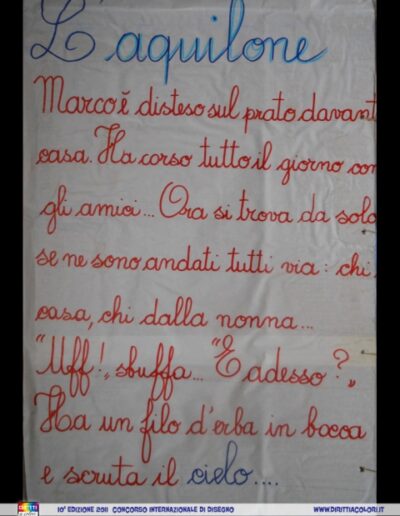 L'aquilone
Marco è disteso sul prato davant
casa. Ha corso tutto il giorno con
gli amici... Ora si trova da solo
se ne sono andati tutti via: chi
casa, chi dalla nonna...
"Uff!„ sbuffa... "E adesso?„
Ha un filo d'erba in bocca
e scruta il cielo....
10ª EDIZIONE 2011 CONCORSO INTERNAZIONALE DI DISEGNO WWW.DIRITTIACOLORI.IT